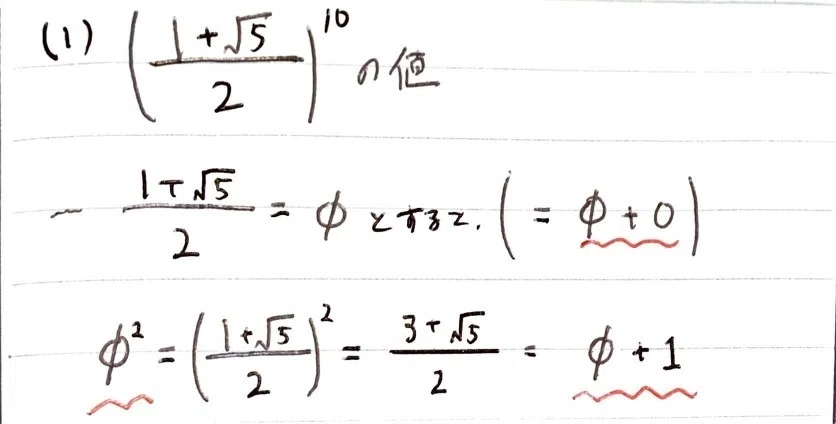 (1) ((1+√5)/2)^10 の値
~ (1+√5)/2 = φ とすると, ( = φ + 0 )
φ^2 = ((1+√5)/2)^2 = (3+√5)/2 = φ + 1